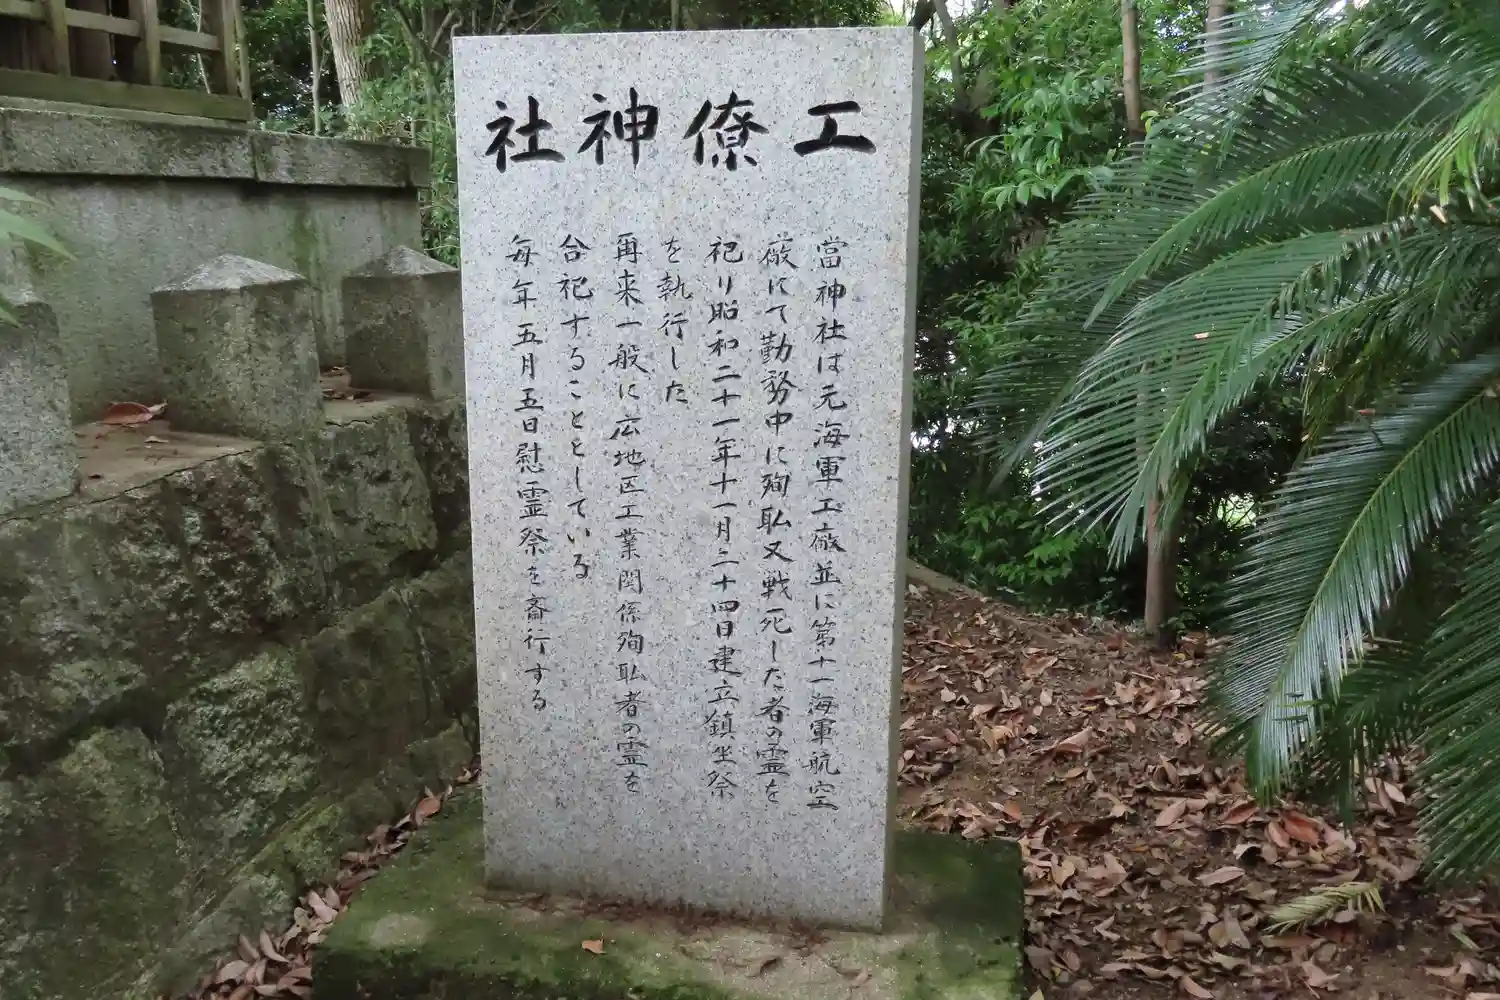 工僚神社
當神社は元海軍工廠並に第十一海軍航空
廠にて勤務中に殉职又戦死した者の霊を
祀り昭和二十一年十一月二十四日建立鎮坐祭
を執行した
再来一般に広地区工業関係殉职者の霊を
合祀することをしている
毎年五月五日慰霊祭を斎行する